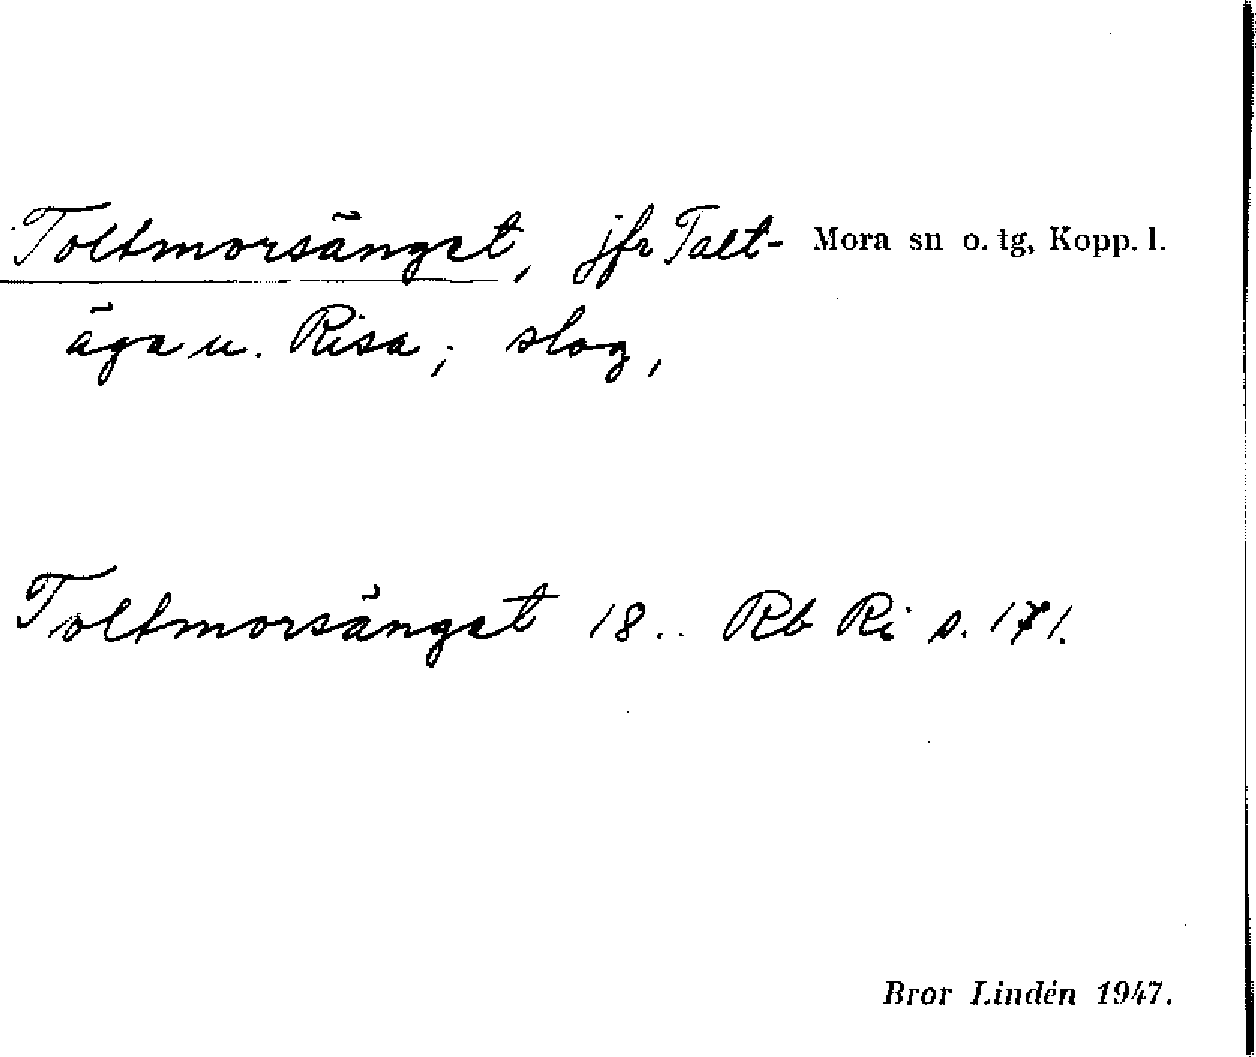 Toltmorsänget, jfr Talt- Mora sn o. tg, Kopp. l.
äga u. Risa; slog,
Toltmorsänget 18.. Rb Ri s. 171.
Bror Lindén 1947.